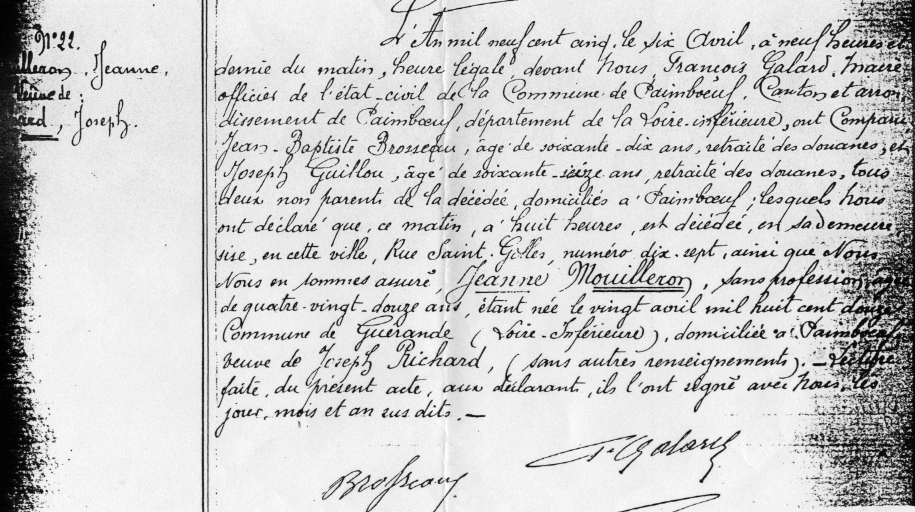 N° 22.
Jeanne,
de :
Joseph.
L'An mil neuf cent cinq, le six Avril, à neuf heures et
demie du matin, heure légale, devant Nous, François Galard, Maire
officier de l'état-civil de la Commune de Paimbœuf, Canton et arron
dissement de Paimbœuf, département de la Loire-inférieure, ont Comparu
Jean-Baptiste Brosseau, âgé de soixante-dix ans, retraité des douanes, et
Joseph Guillou, âgé de soixante-seize ans, retraité des douanes, tous
deux non parents de la décédée, domiciliés à Paimbœuf; lesquels Nous
ont déclaré que, ce matin, à huit heures, est décédée, en sa demeure
sise, en cette ville, Rue Saint-Gilles, numéro dix-sept, ainsi que Nous
Nous en sommes assuré, Jeanne Mouilleron, sans profession, âgée
de quatre-vingt-douze ans, étant née le vingt avril mil huit cent douze
Commune de Guérande (Loire-Inférieure), domiciliée à Paimbœuf
veuve de Joseph Richard, (sans autres renseignements). — Lecture
faite, du présent acte, aux déclarant, ils l'ont signé avec Nous, les
jour, mois et an susdits. —
F. Galard
Brosseau